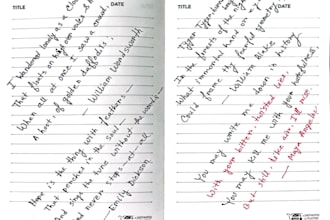 TITLE
DATE
I wandered lonely as a Cloud
That floats on high o'er vales &
When all at once I saw a crowd,
A host, of golden daffodils.
— William Wordsworth
Hope is the thing with feathers —
That perches in the soul —
And sings the tune without the words —
And never stops — at — all —
— Emily Dickinson
TITLE
DATE
In the forests of the
What immortal hand or eye
Could frame thy fearful symmetry
— William Blake
You may write me down in history
With your bitter, twisted lies.
You may kill me with your hatefulness
But still, like air, I'll rise.
— Maya Angelou